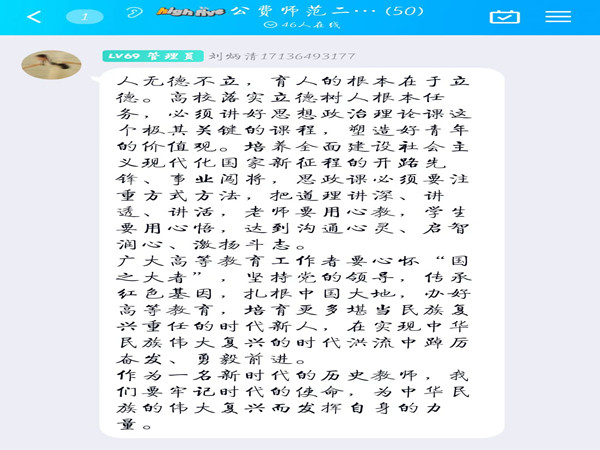 1
high five 公费师范二…(50)
46人在线
LV69 管理员 刘炳清17136493177
人无德不立，育人的根本在于立
德。高校落实立德树人根本任
务，必须讲好思想政治理论课这
个极其关键的课程，塑造好青年
的价值观。培养全面建设社会主
义现代化国家新征程的开路先
锋、事业闯将，思政课必须要注
重方式方法，把道理讲深、讲
透、讲活，老师要用心教，学生
要用心悟，达到沟通心灵、启智
润心、激扬斗志。
广大高等教育工作者要心怀“国
之大者”，坚持党的领导，传承
红色基因，扎根中国大地，办好
高等教育，培育更多堪当民族复
兴重任的时代新人，在实现中华
民族伟大复兴的时代洪流中踔厉
奋发、勇毅前进。
作为一名新时代的历史教师，我
们要牢记时代的使命，为中华民
族的伟大复兴而发挥自身的力
量。